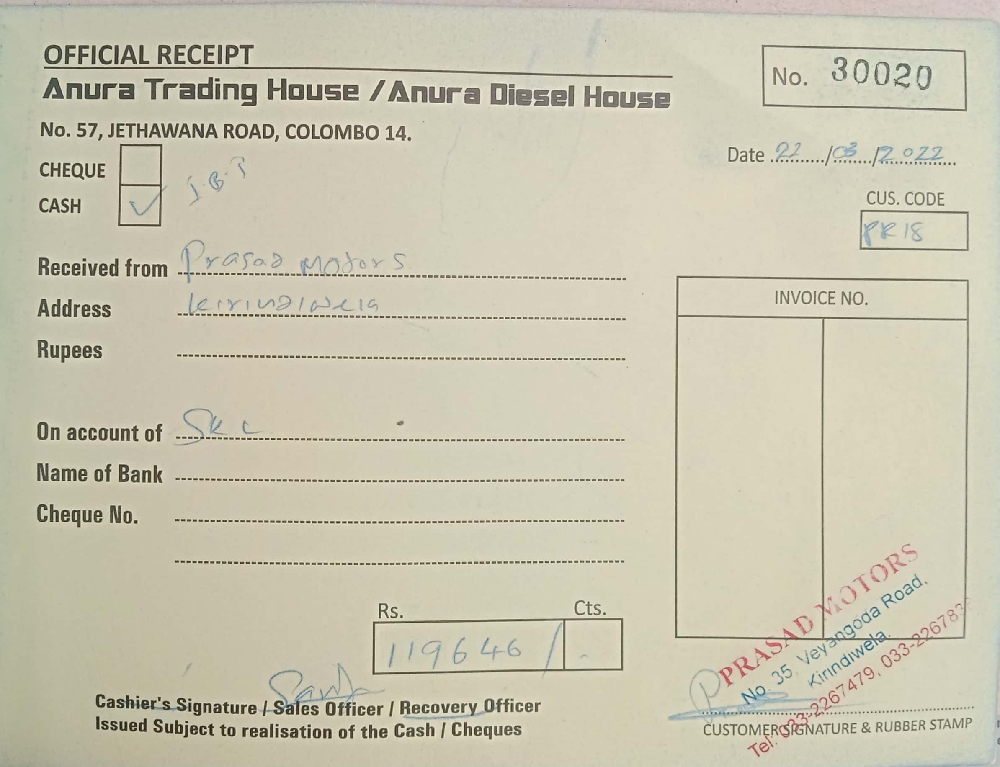 OFFICIAL RECEIPT
No. 30020
Anura Trading House / Anura Diesel House
No. 57, JETHAWANA ROAD, COLOMBO 14.
Date 22/03/2022
CHEQUE
CASH ✓
CUS. CODE
PR18
Received from Prasad Motors
Address Kirindiwela
INVOICE NO.
Rupees
On account of
Name of Bank
Cheque No.
Rs. Cts.
119646/ -
PRASAD MOTORS
No. 35, Veyangoda Road,
Kirindiwela.
Tel: 033-2267479, 033-226783
Cashier's Signature / Sales Officer / Recovery Officer
Issued Subject to realisation of the Cash / Cheques
CUSTOMER SIGNATURE & RUBBER STAMP